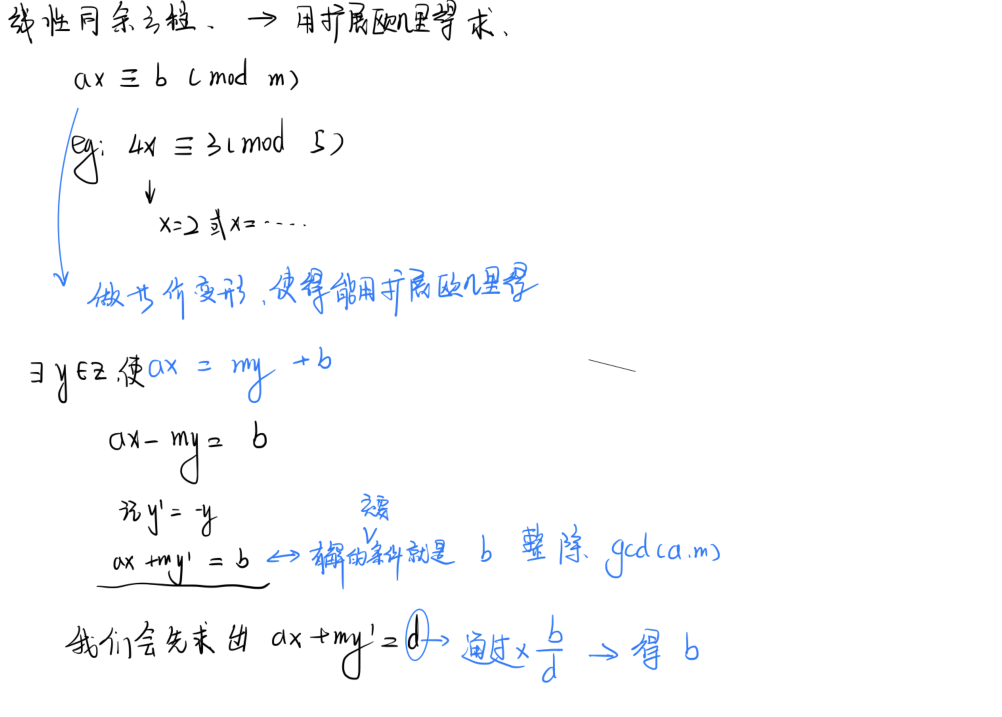 线性同余方程、→ 用扩展欧几里得求、
ax ≡ b (mod m)
eg: 4x ≡ 3(mod 5)
↓
x=2 或 x=......
做等价变形、使得能用扩展欧几里得
∃ y∈Z,使 ax = my + b
ax - my = b
记 y' = -y
充要
ax + my' = b ↔ 有解的条件就是 b 整除 gcd(a.m)
我们会先求出 ax + my' = d → 通过 × b/d → 得 b